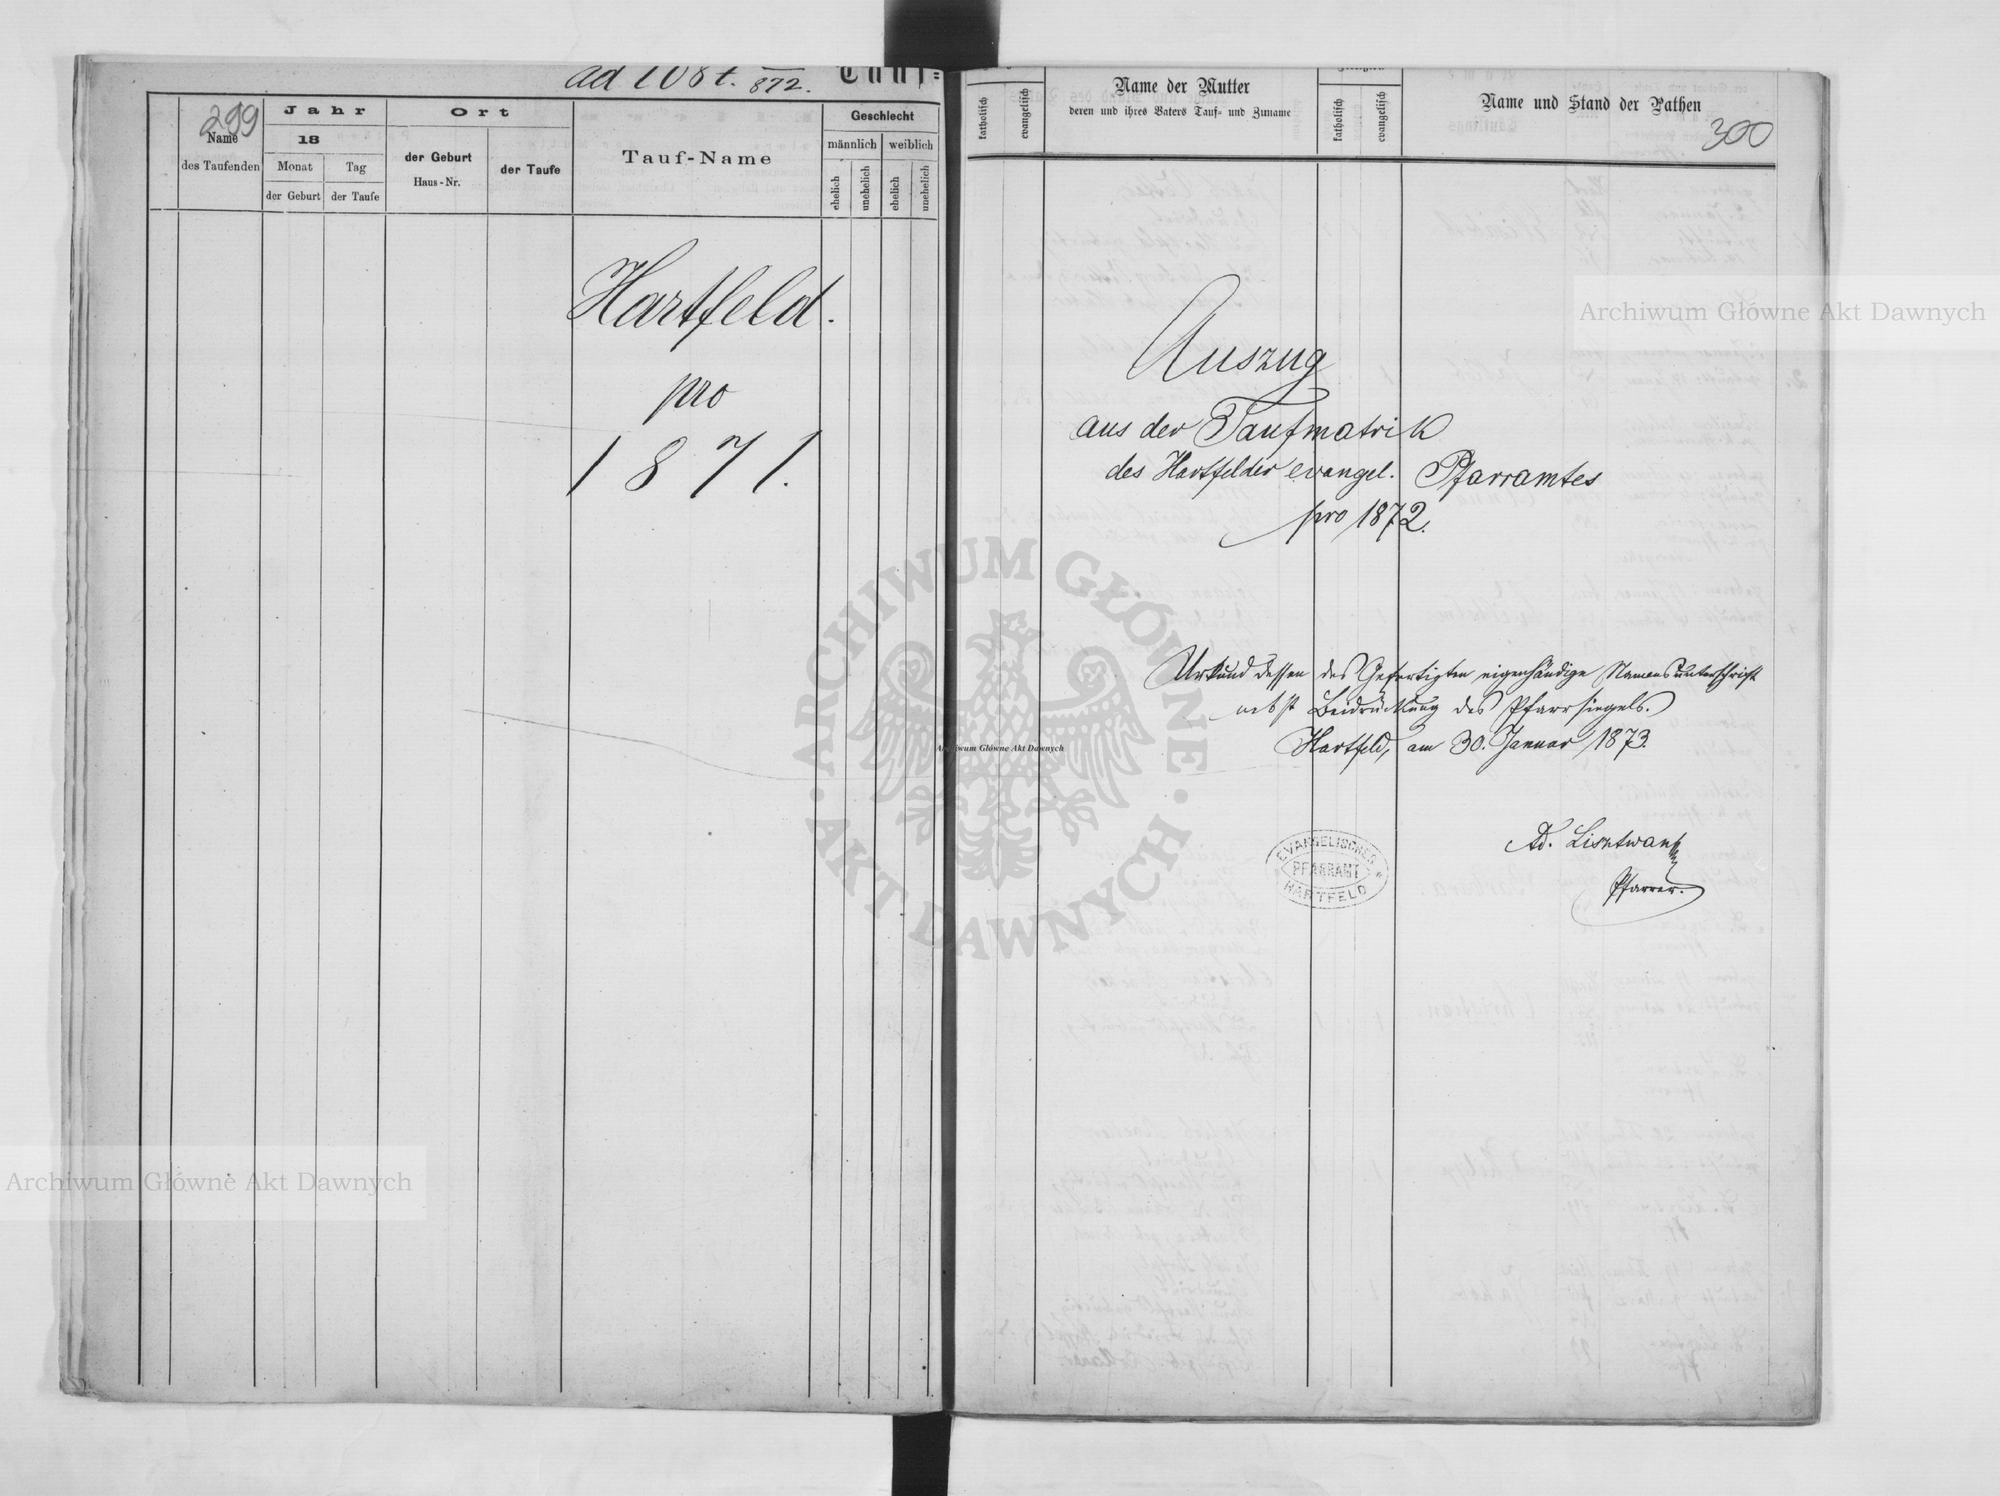 ad 108 t. 872. Tauf=
299
Name
des Taufenden
Jahr
18
Monat
Tag
der Geburt
der Taufe
Ort
der Geburt
Haus-Nr.
der Taufe
Tauf-Name
Geschlecht
männlich
weiblich
ehelich
unehelich
ehelich
unehelich
Hartfeld.
pro
1871.
katholisch
evangelisch
Name der Mutter
deren und ihres Vaters Tauf= und Zuname
katholisch
evangelisch
Name und Stand der Pathen
300
Auszug
aus der Taufmatrik
des Hartfelder evangel. Pfarramtes
pro 1872.
Urkund dessen des Gefertigten eigenhändige Namensunterschrift
nebst Beidrückung des Pfarrsiegels.
Hartfeld, am 30. Januar 1873.
Ad. Lisztwan
Pfarrer.
EVANGELISCHES
PFARRAMT
HARTFELD
Archiwum Główne Akt Dawnych
ARCHIWUM GŁÓWNE
AKT DAWNYCH
Archiwum Główne Akt Dawnych
Archiwum Główne Akt Dawnych